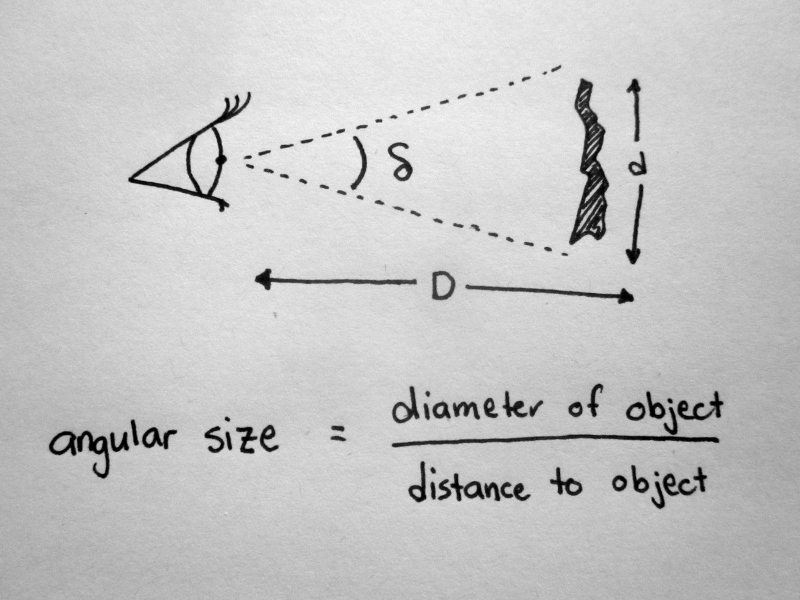 δ
d
D
angular size = diameter of object
distance to object